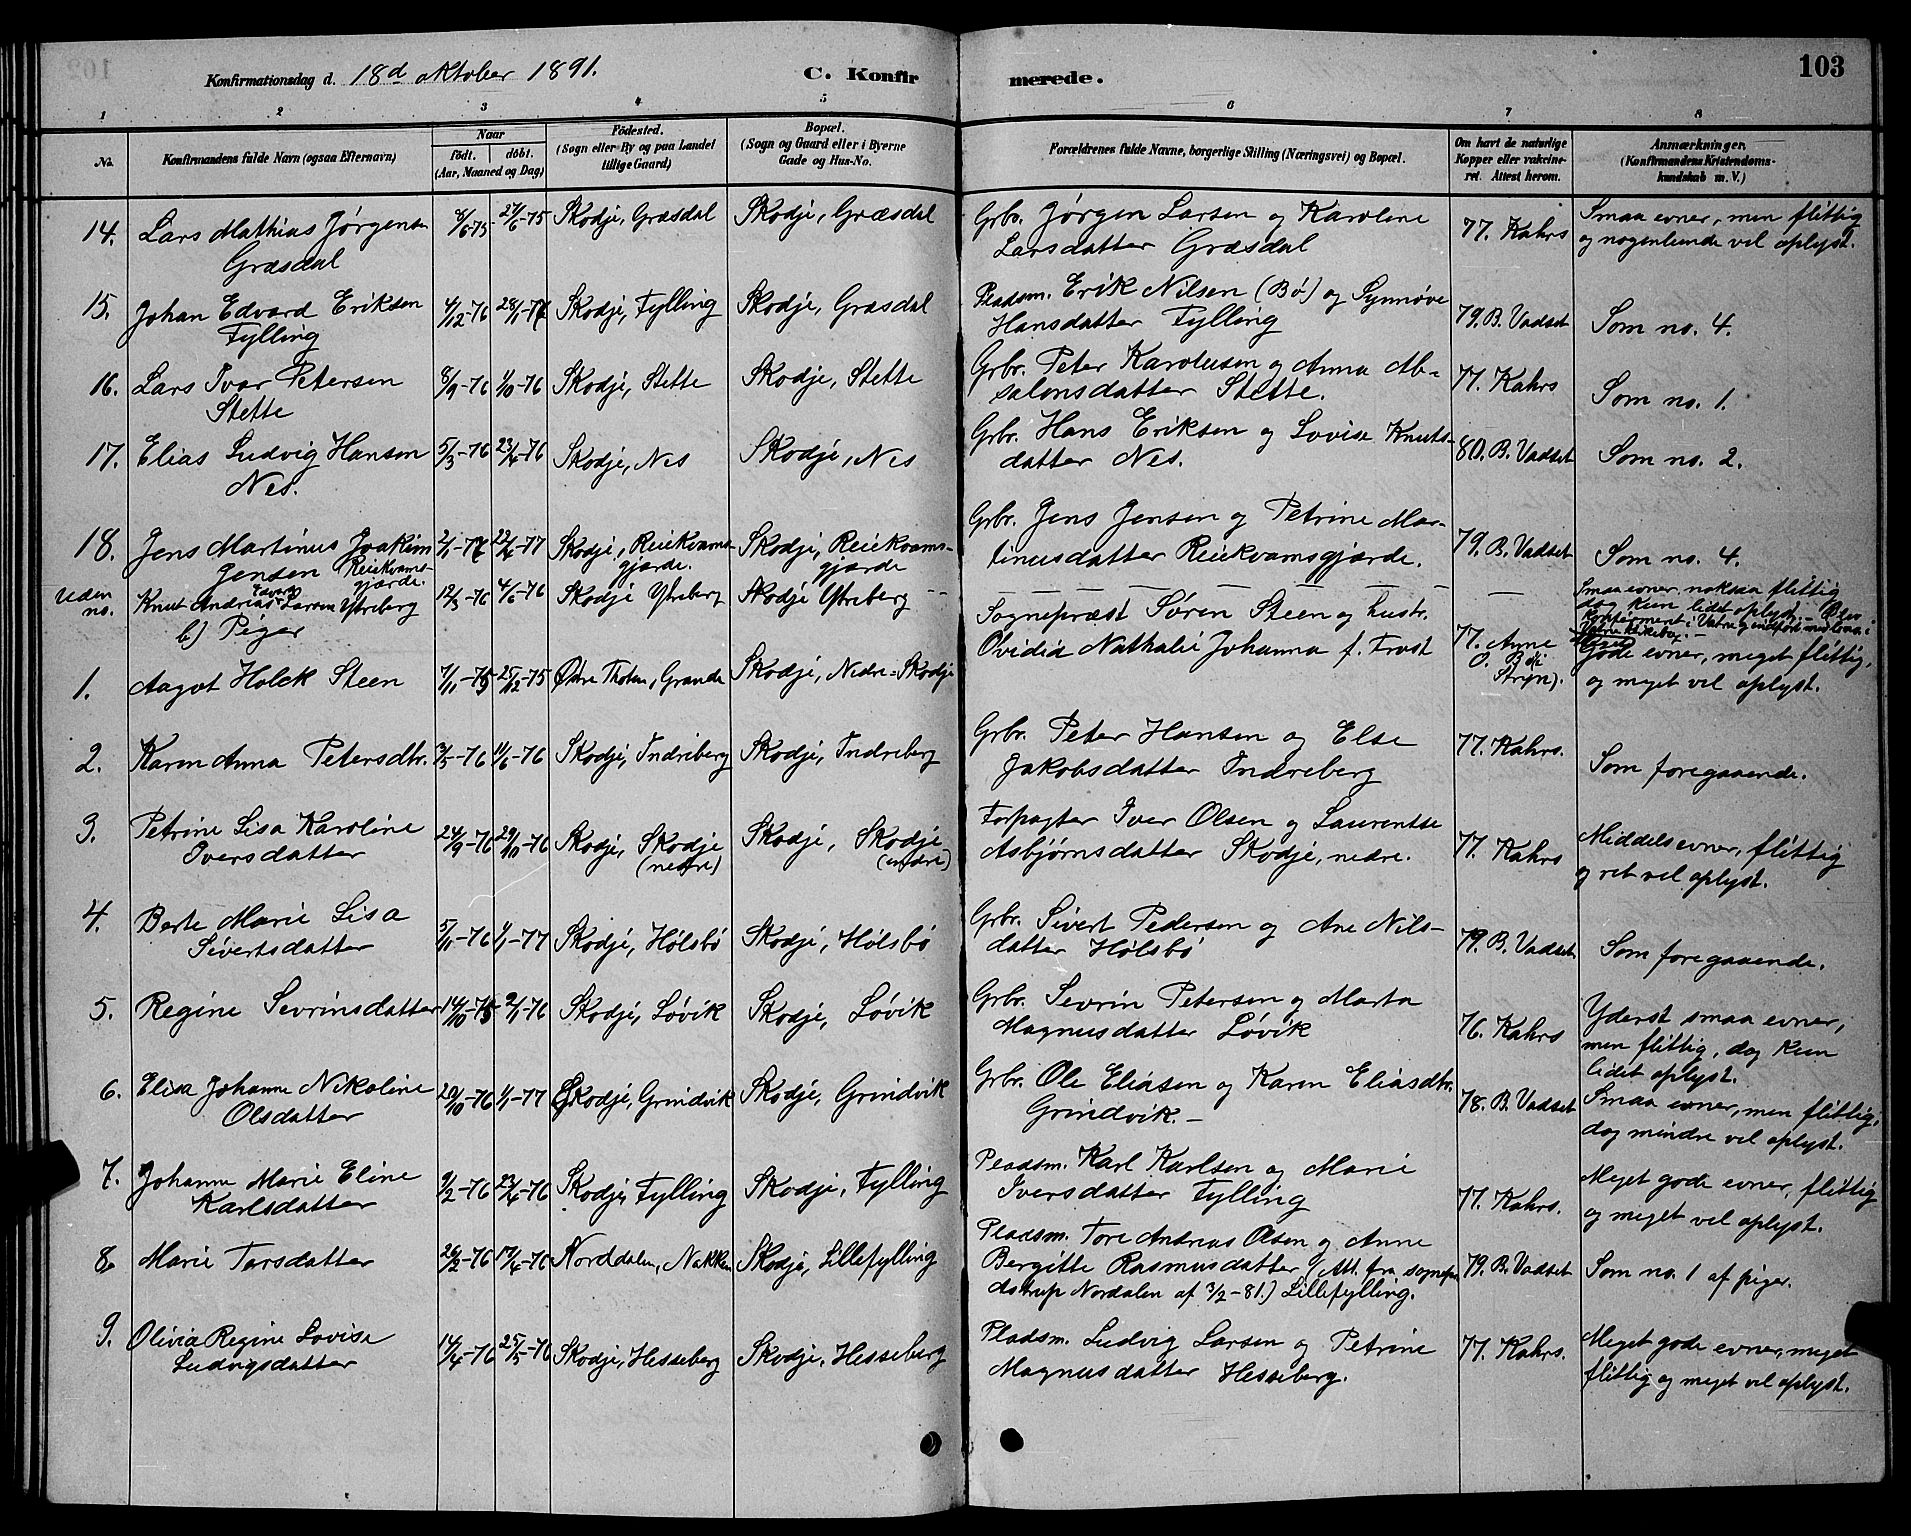 Konfirmationsdag d. 18d oktober 1891.
C. Konfirmerede.
103
1 2 3 4 5 6 7 8
No.
Konfirmandens fulde Navn (ogsaa Efternavn)
Naar
födt. döbt.
(Aar, Maaned og Dag)
Födested.
(Sogn eller By og paa Landet
tillige Gaard)
Bopæl.
(Sogn og Gaard eller i Byerne
Gade og Hus-No.
Forældrenes fulde Navne, borgerlige Stilling (Næringsvei) og Bopæl.
Om havt de naturlige
Kopper eller vakcine-
ret. Attest herom.
Anmærkninger.
(Konfirmandens Kristendoms-
kundskab m. V.)
14. Lars Mathias Jørgensen 8/6-75 27/6-75 Skodje, Græsdal Skodje, Græsdal Grbr. Jørgen Larsen og Karoline 77. Kahrs Smaa evner, men flittig
Græsdal Larsdatter Græsdal og nogenlunde vel oplyst.
15. Johan Edvard Eriksen 4/12-76 28/1-77 Skodje, Fylling Skodje, Græsdal Pladsm. Erik Nilsen (Bö) og Synnöve 79. B. Vadset Som no. 4.
Fylling Hansdatter Fylling
16. Lars Ivar Petersen 8/9-76 1/10-76 Skodje, Stette Skodje, Stette Grbr. Peter Karolusen og Anna Ab- 77. Kahrs Som no. 1.
Stette salonsdatter Stette.
17. Elias Ludvig Hansen 5/3-76 23/4-76 Skodje, Nes Skodje, Nes Grbr. Hans Eriksen og Lovise Knuts- 80. B. Vadset Som no. 2.
Nes. datter Nes.
18. Jens Martinus Joakim 2/1-77 22/4-77 Skodje, Reiekvams- Skodje, Reiekvams- Grbr. Jens Jensen og Petrine Mar- 79. B. Vadset Som no. 4.
Jensen Reiekvams- gjærde. gjærde. gjærde tinusdatter Reiekvamsgjærde.
Uden no. Knut Andreas Edvard Larsen Ytreberg 12/3-76 4/6-76 Skodje Ytreberg Skodje Ytreberg — — — — Smaa evner, noksaa flittig
dog kun lidet oplyst. — Blev
konfirmeret i Vatne
b) Piger
1. Aagot Holck Steen 7/11-75 25/12-75 Østre Thoten, Grande Skodje, Nedre-Skodje Sognepræst Sören Steen og hustr. 77. Anne Gode evner, meget flittig,
Ovidia Nathalie Johanna f. Frost O. Böe Stryn). og meget vel oplyst.
2. Karen Anna Petersdtr. 3/5-76 11/6-76 Skodje, Indreberg Skodje, Indreberg Grbr. Peter Hansen og Else 77. Kahrs. Som foregaaende.
Jakobsdatter Indreberg
3. Petrine Lisa Karoline 24/9-76 29/10-76 Skodje, Skodje Skodje, Skodje Forpagter Iver Olsen og Laurentse 77. Kahrs Middels evner, flittig
Iversdatter (nedre) (nedre) Asbjørnsdatter Skodje, nedre. og ret vel oplyst.
4. Berte Marie Lisa 5/11-76 1/1-77 Skodje, Hölsbö Skodje, Hölsbö Grbr. Sivert Pedersen og Ane Nils- 79. B. Vadset Som foregaaende.
Sivertsdatter datter Hölsbö
5. Regine Sevrinsdatter 14/10-75 2/1-76 Skodje, Lövik Skodje, Lövik Grbr. Sevrin Petersen og Marta 76. Kahrs Yderst smaa evner,
Magnusdatter Lövik men flittig, dog kun
lidet oplyst.
6. Elisa Johanne Nikoline 20/10-76 1/1-77 Skodje, Grindvik Skodje, Grindvik Grbr. Ole Eliasen og Karen Eliasdtr. 78. B. Vadset Smaa evner, men flittig,
Olsdatter Grindvik. — dog mindre vel oplyst.
7. Johanne Marie Eline 9/2-76 23/4-76 Skodje Fylling Skodje, Fylling Pladsm. Karl Karlsen og Marie 77. Kahrs. Meget gode evner, flittig
Karlsdatter Iversdatter Fylling og meget vel oplyst.
8. Marie Torsdatter 26/2-76 17/4-76 Norddalen, Nakken Skodje, Lillefylling Pladsm. Tore Andreas Olsen og Anne 79. B. Vadset Som no. 1 af piger.
Bergitte Rasmusdatter (Att. fra sognepr.
Nordalen af 3/2-81.) Lillefylling.
9. Olivia Regine Lovise 14/4-76 25/5-76 Skodje, Hesseberg Skodje, Hesseberg Pladsm. Ludvig Larsen og Petrine 77. Kahrs. Meget gode evner, meget
Ludvigsdatter Magnusdatter Hesseberg. flittig og meget vel oplyst.